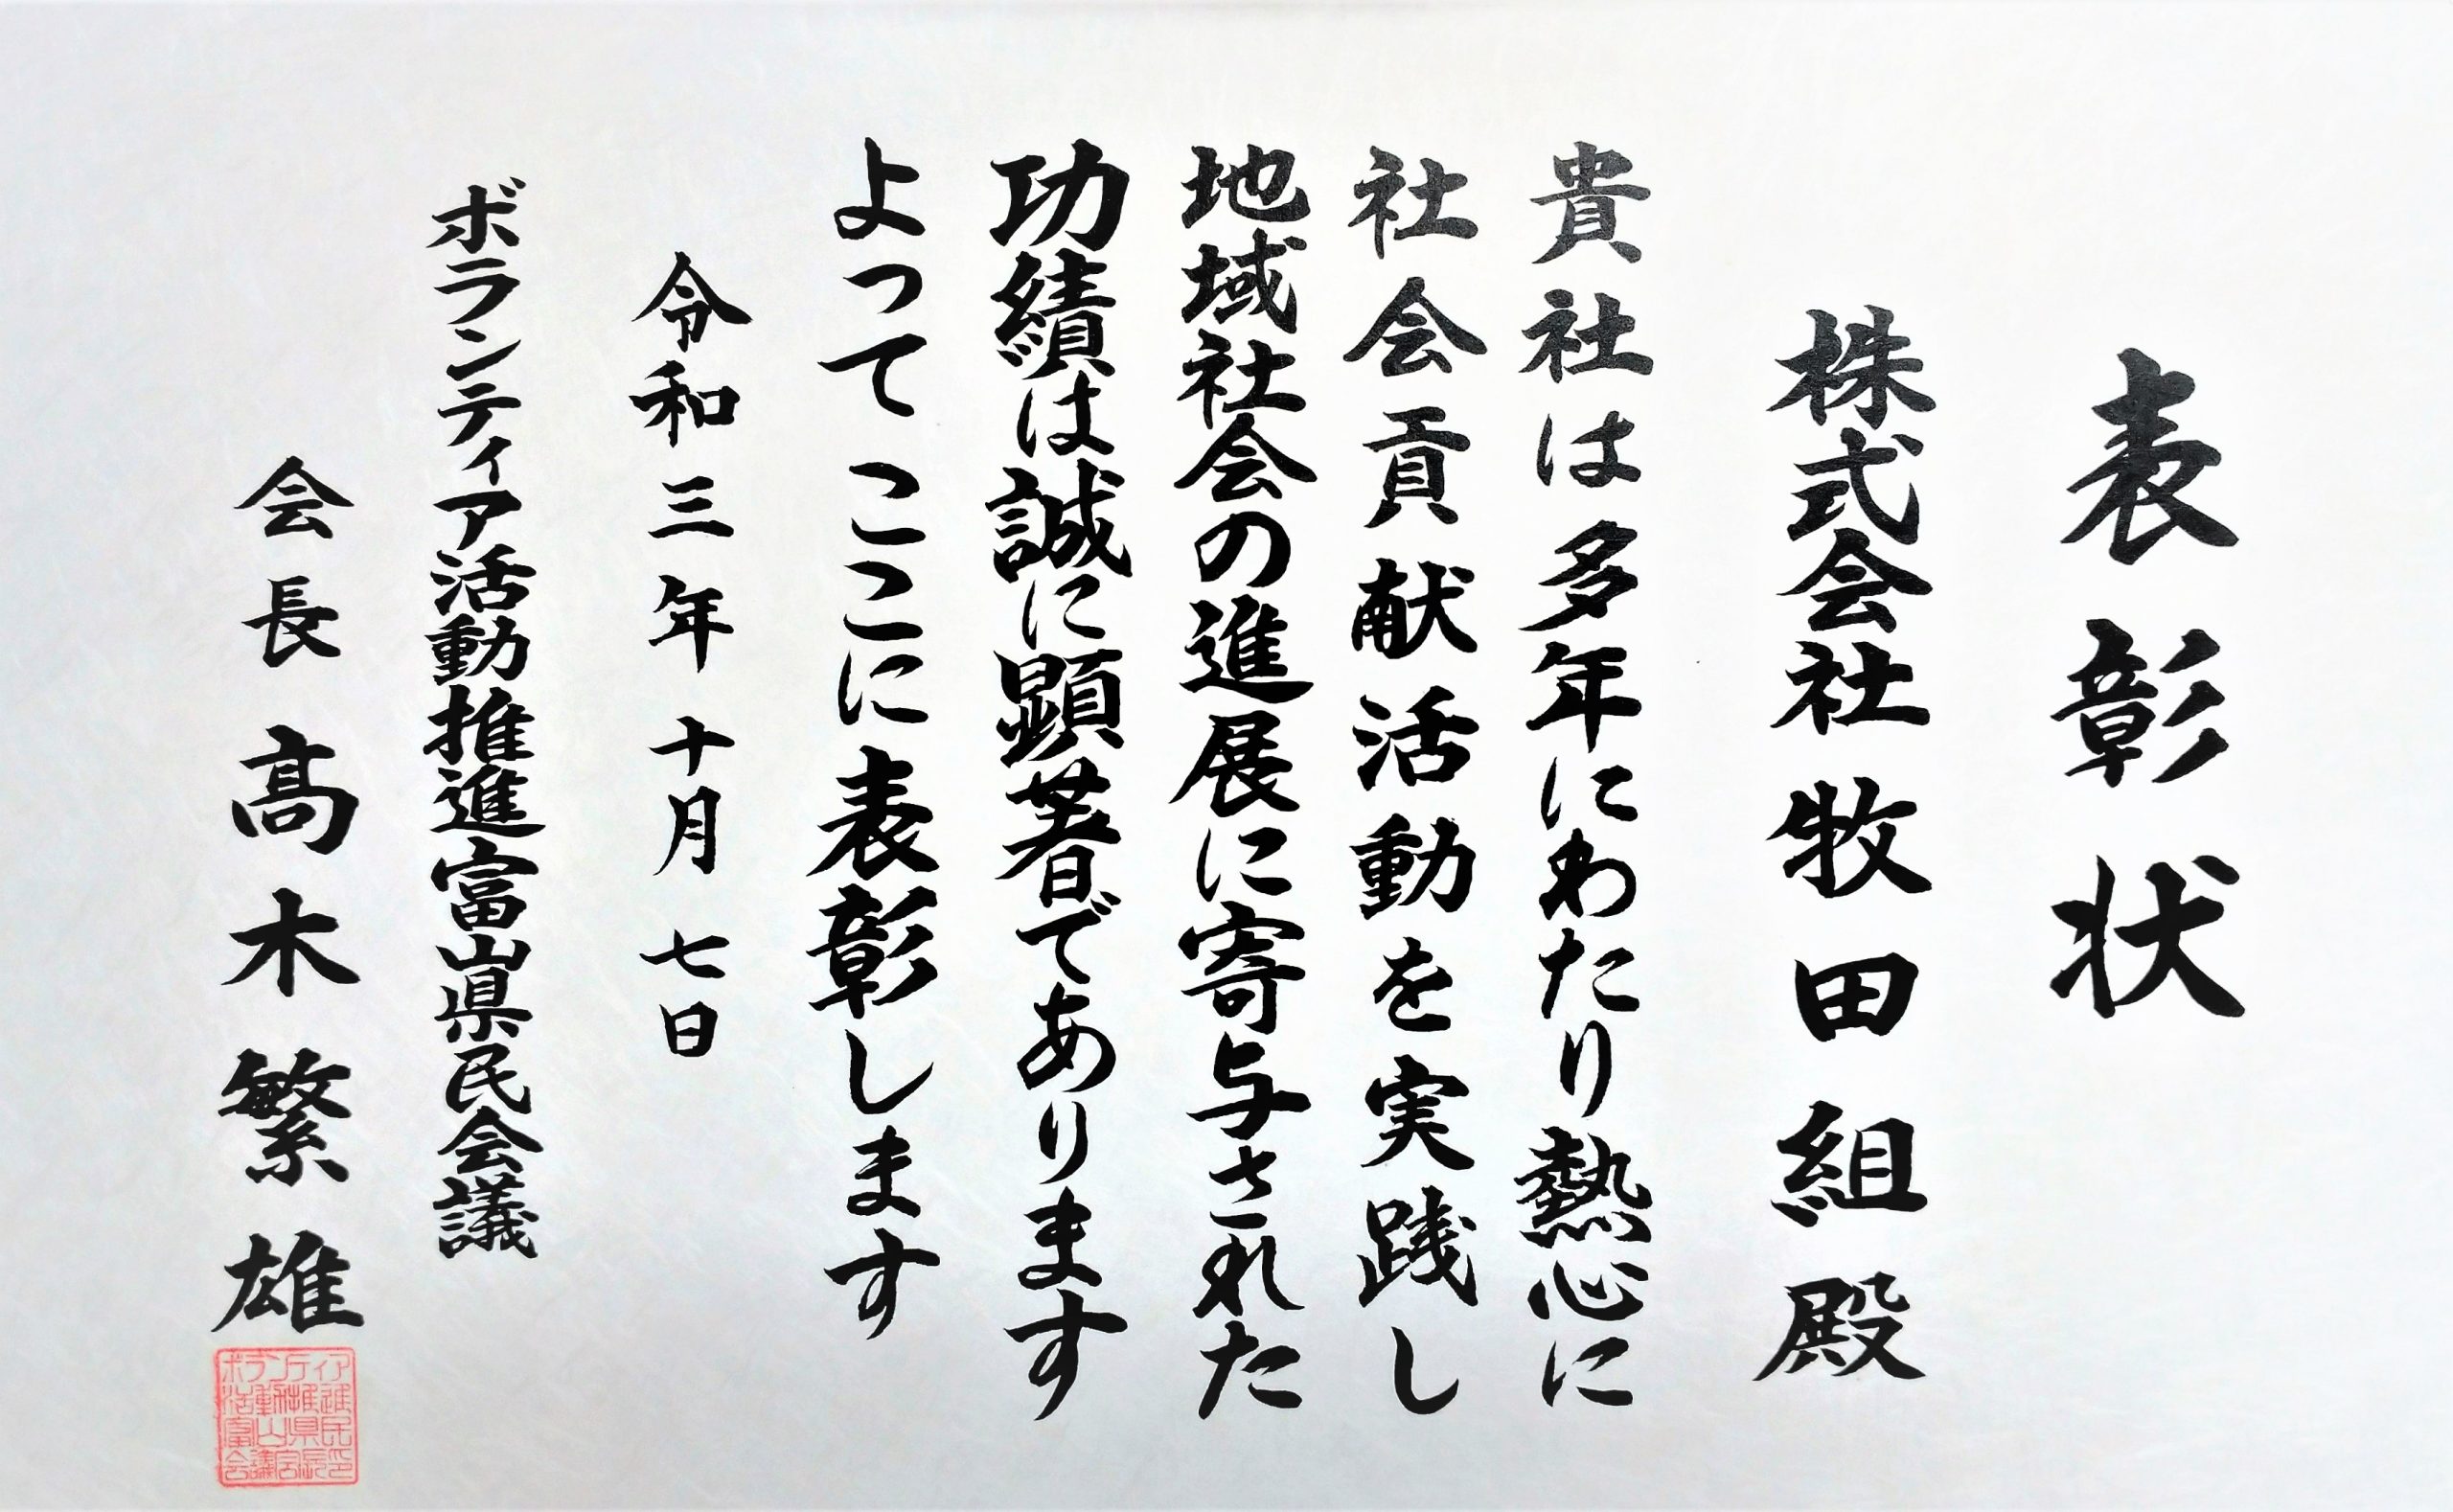 表彰状
株式会社牧田組殿
貴社は多年にわたり熱心に
社会貢献活動を実践し
地域社会の進展に寄与された
功績は誠に顕著であります
よってここに表彰します
令和三年十月七日
ボランティア活動推進富山県民会議
会長髙木繁雄